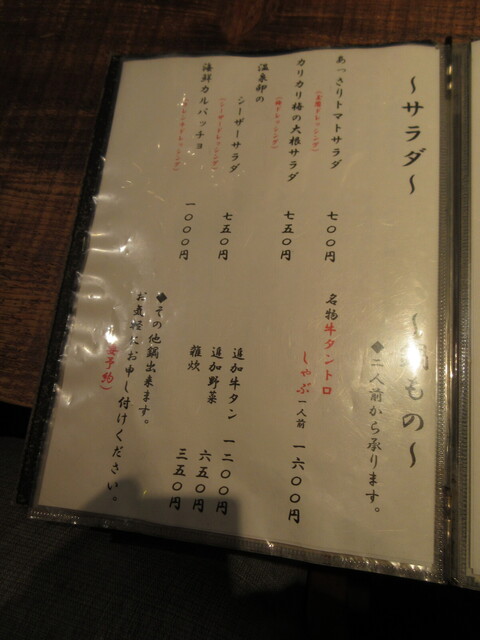 ～サラダ～
あっさりトマトサラダ 七〇〇円
カリカリ梅の大根サラダ 七五〇円
(梅ドレッシング)
温泉卵の
シーザーサラダ 七五〇円
(シーザードレッシング)
海鮮カルパッチョ 一〇〇〇円
もの～
◆二人前から承ります。
名物牛タントロ
しゃぶ 一人前 一六〇〇円
追加牛タン 一二〇〇円
追加野菜 六五〇円
雑炊 三五〇円
◆その他鍋出来ます。
お気軽にお申し付けください。
予約)